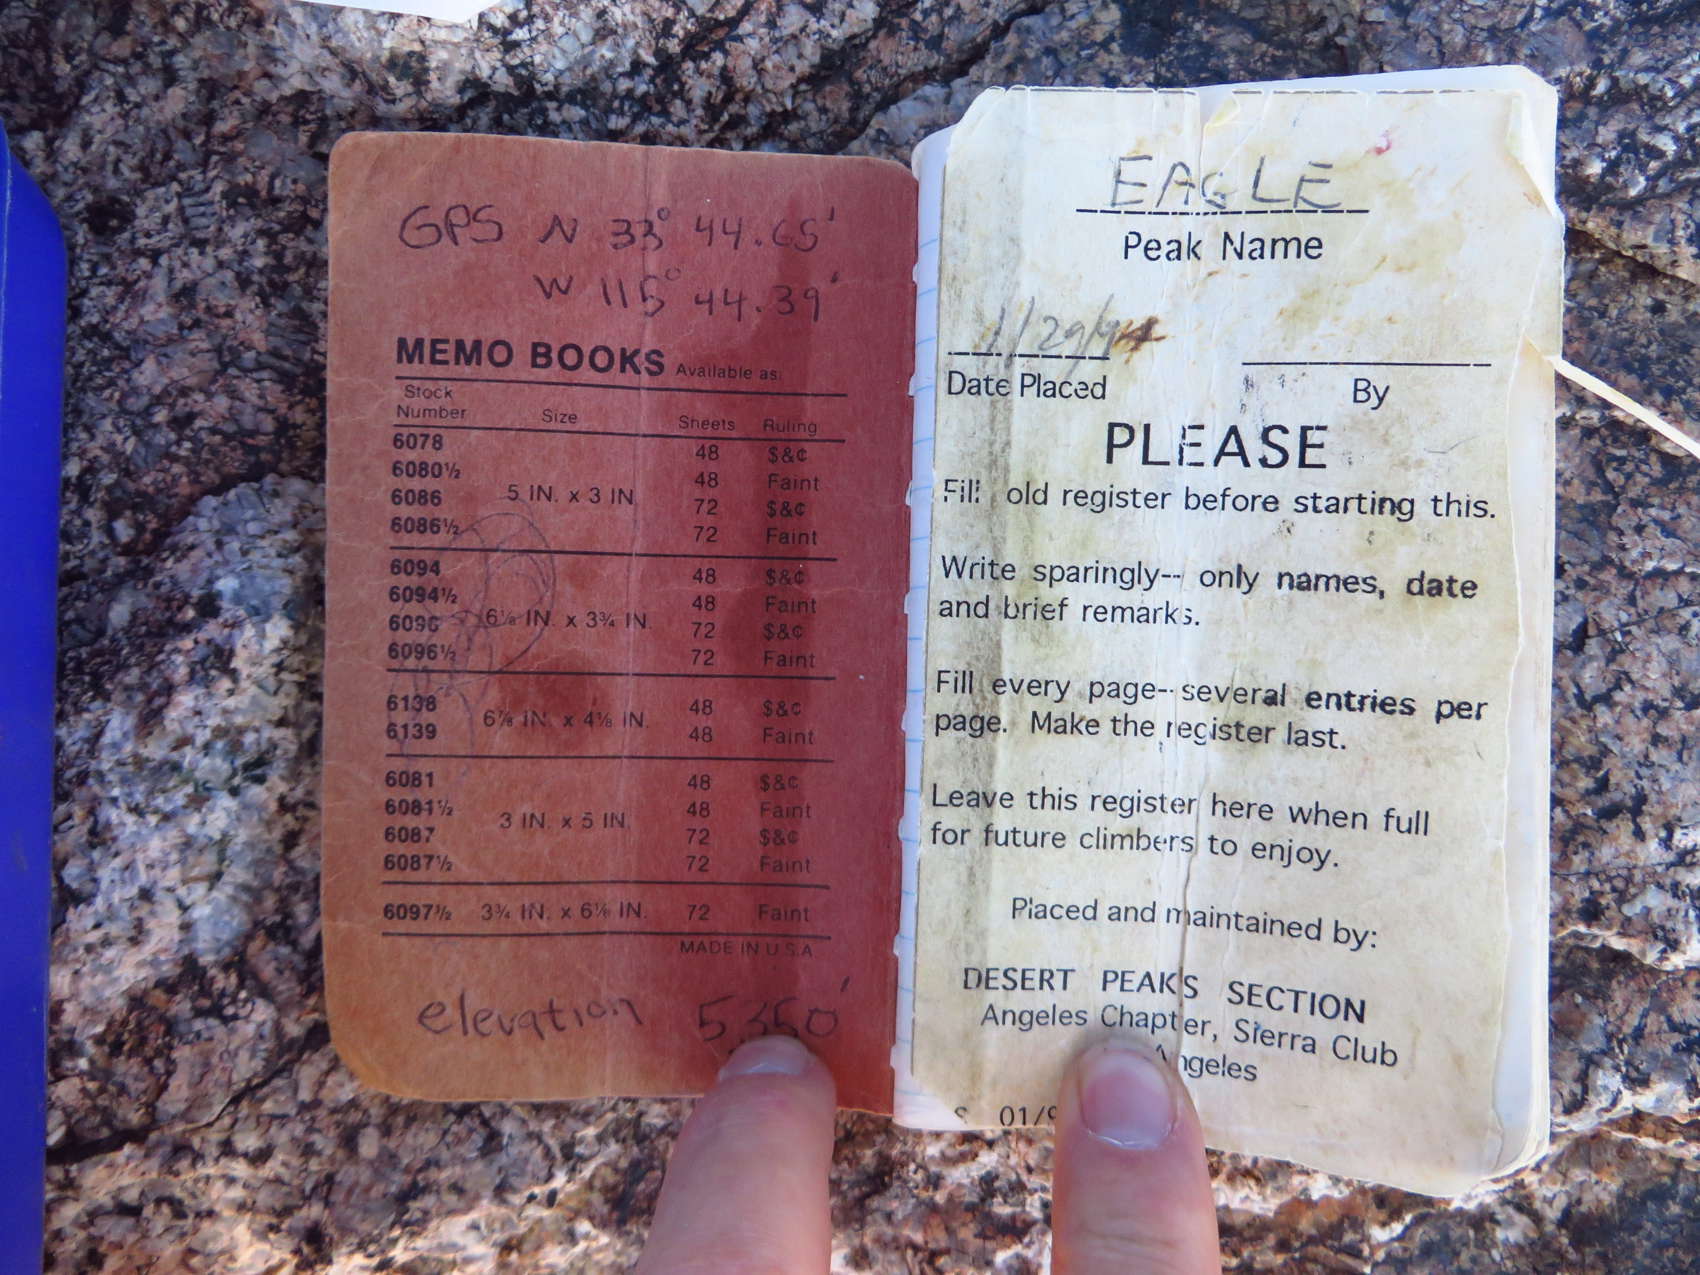 GPS N 33° 44.65'
W 115° 44.39'
MEMO BOOKS Available as:
Stock Number Size Sheets Ruling
6078 48 $&¢
6080½ 48 Faint
6086 5 IN. x 3 IN. 72 $&¢
6086½ 72 Faint
6094 48 $&¢
6094½ 48 Faint
6096 6⅛ IN. x 3¾ IN. 72 $&¢
6096½ 72 Faint
6138 48 $&¢
6139 6⅞ IN. x 4⅛ IN. 48 Faint
6081 48 $&¢
6081½ 48 Faint
6087 3 IN. x 5 IN. 72 $&¢
6087½ 72 Faint
6097½ 3¾ IN. x 6⅛ IN. 72 Faint
MADE IN U.S.A
elevation 5350'
EAGLE
Peak Name
1/29/94
Date Placed By
PLEASE
Fill old register before starting this.
Write sparingly-- only names, date
and brief remarks.
Fill every page--several entries per
page. Make the register last.
Leave this register here when full
for future climbers to enjoy.
Placed and maintained by:
DESERT PEAKS SECTION
Angeles Chapter, Sierra Club
Angeles
01/9